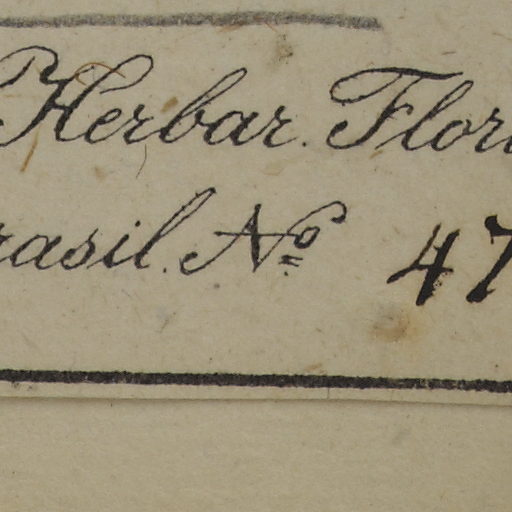 Herbar. Flor
rasil. No 47